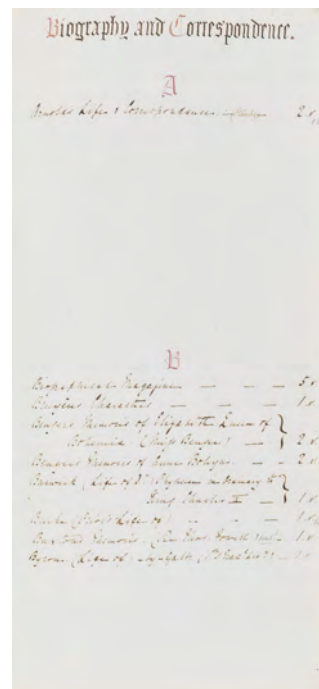 Biography and Correspondence.
A
Arnolds Life & Correspondence 2 v.
B
Biographical Magazine — — — 5 v.
Characters — — — 1 v.
Bengers Memoirs of Elizabeth Queen of
Bohemia (Miss Benger) — 2 v.
Bengers Memoirs of Anne Boleyn — — 2 v.
Barwick (Life of Dr. Physician in Ordinary to
King Charles II — 1 v.
Burke (Life of) — — 1 v.
Buxtons Memoirs (Sir Thos. Fowell) 1 v.
Byron (Life of) by Galt 1 v.